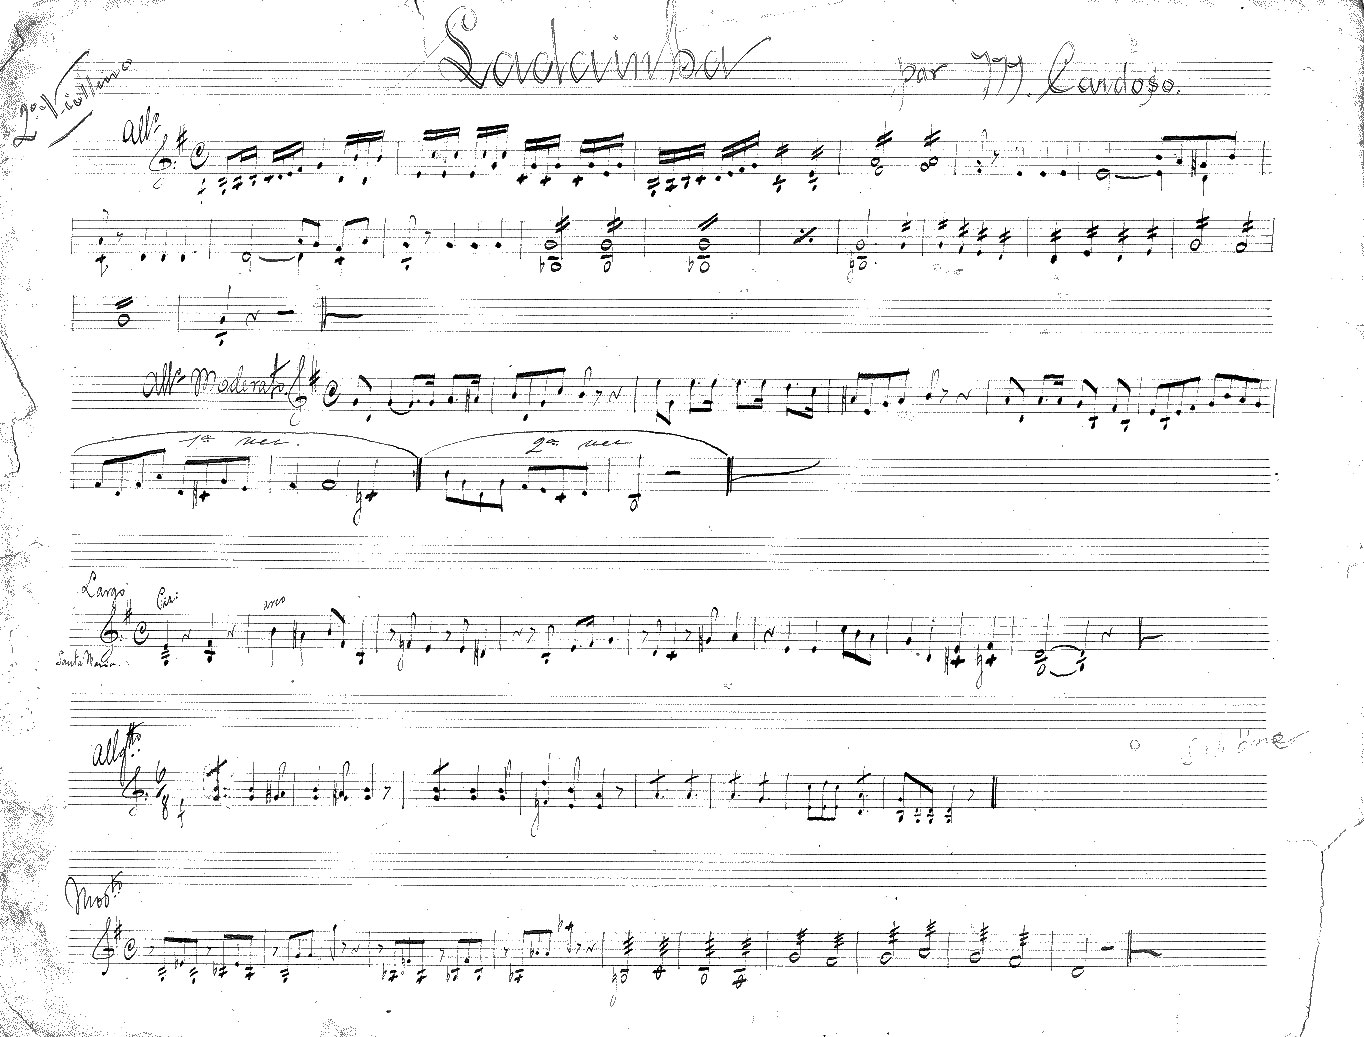 2º Violino
Ladainha
par M. Cardoso.
Allº
Allº Moderato
1ª vez.
2ª vez
Largo
Piz:
arco
Santa Maria
Allgtto
f
Modto